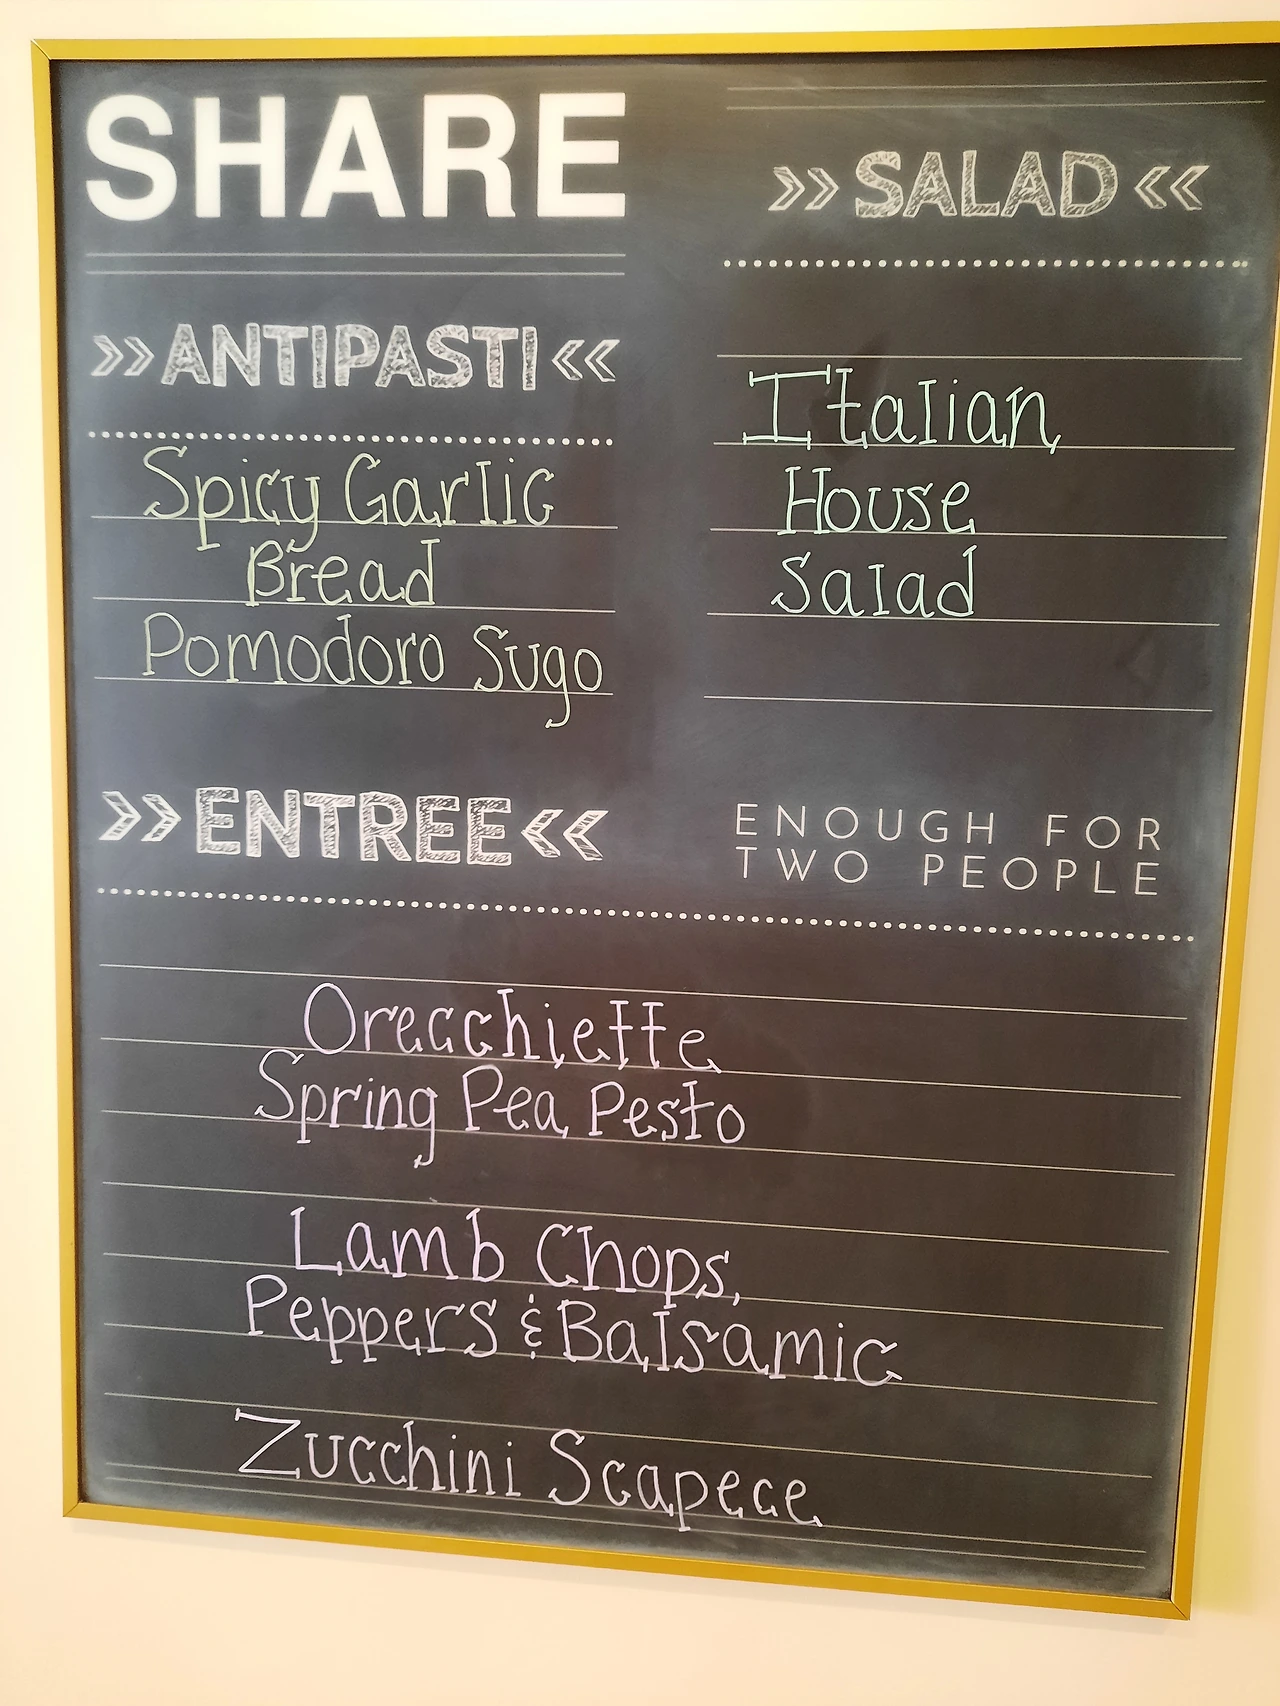 SHARE
>> ANTIPASTI <<
Spicy Garlic
Bread
Pomodoro Sugo
>> SALAD <<
Italian
House
Salad
>> ENTREE <<
ENOUGH FOR
TWO PEOPLE
Orecchiette
Spring Pea Pesto
Lamb Chops,
Peppers & Balsamic
Zucchini Scapece